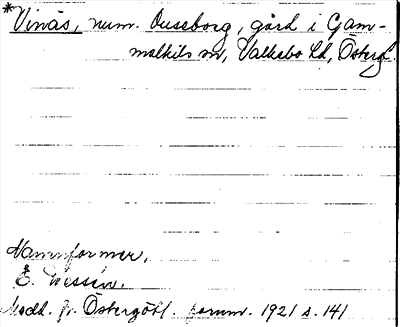 *Vinäs, num. Duseborg, gård i Gam-
malkils sn, Valkebo hd, Österg.
Namnformer.
E. Wessén.
Medd. fr. Östergötl. fornm. 1921 s. 141